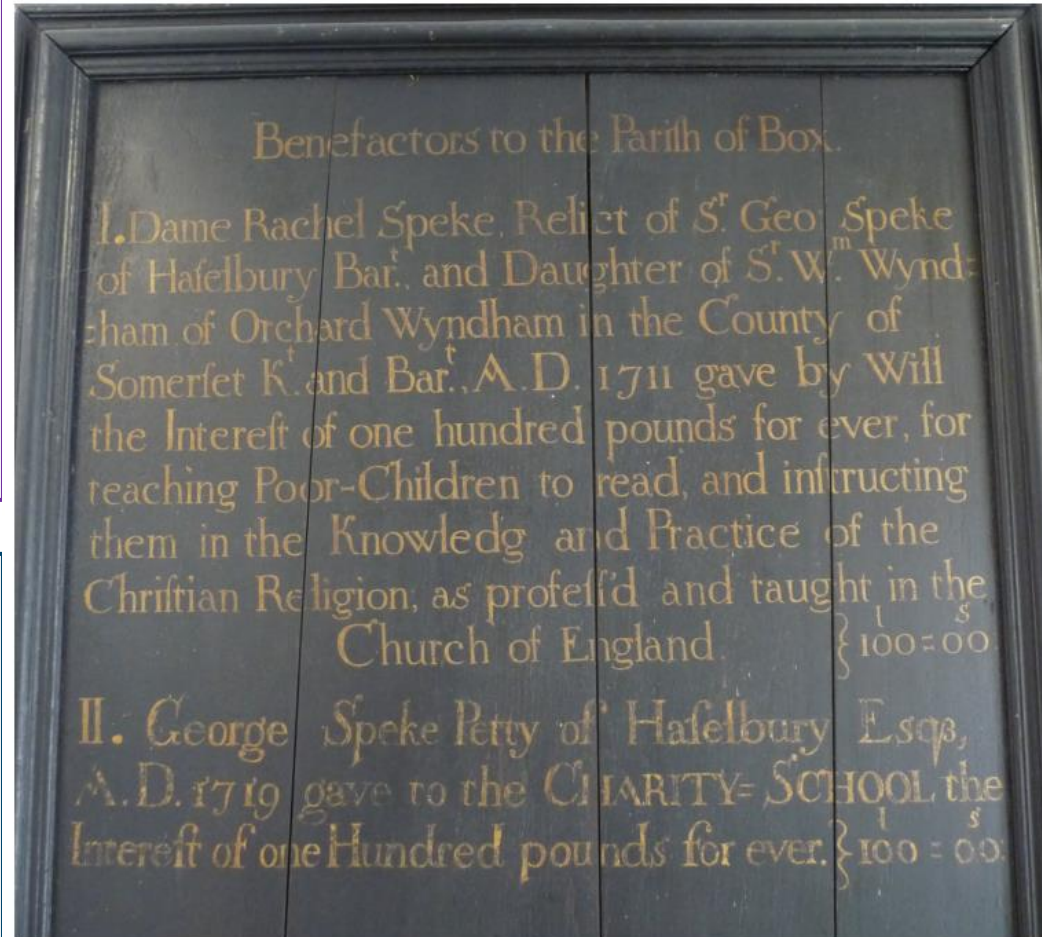 Benefactors to the Pariſh of Box.
I. Dame Rachel Speke, Relict of Sʳ. Geo: Speke
of Haſelbury Barᵗ., and Daughter of Sʳ. Wᵐ. Wynd=
=ham of Orchard Wyndham in the County of
Somerſet Kᵗ. and Barᵗ., A.D. 1711 gave by Will
the Intereſt of one hundred pounds for ever, for
teaching Poor-Children to read, and inſtructing
them in the Knowledg and Practice of the
Chriſtian Religion, as profeſſ'd and taught in the
Church of England. } 100ˡ=00ˢ
II. George Speke Petty of Haſelbury Esqꝫ,
A.D. 1719 gave to the CHARITY=SCHOOL the
Intereſt of one Hundred pounds for ever. } 100ˡ=00ˢ: